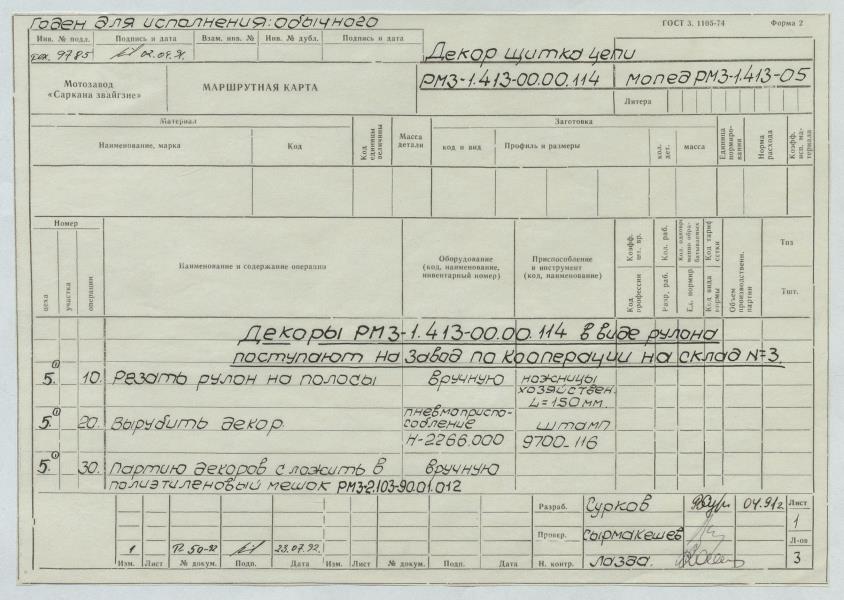 Годен для исполнения: обычного
ГОСТ 3. 1105-74 Форма 2
Инв. № подл. Подпись и дата Взам. инв. № Инв. № дубл. Подпись и дата
9785 02.04.91
Декор щитка цепи
Мотозавод
«Саркана звайгзне»
МАРШРУТНАЯ КАРТА
РМЗ-1.413-00.00.114 мопед РМЗ-1.413-05
Литера
Материал
Наименование, марка Код
Код единицы величины
Масса детали
Заготовка
код и вид Профиль и размеры кол. дет. масса
Единица нормирования
Норма расхода
Коэфф. исп. материала
Номер
цеха участка операции
Наименование и содержание операции
Оборудование
(код, наименование,
инвентарный номер)
Приспособление
и инструмент
(код, наименование)
Коэфф. шт. вр.
Код профессии
Кол. раб.
Разр. раб.
Кол. одновременно обрабатываемых
Ед. нормир.
Код тариф. сетки
Код вида нормы
Объем производственн. партии
Тпз
Тшт.
Декоры РМЗ-1.413-00.00.114 в виде рулона
поступают на завод по кооперации на склад №3.
5. 10. Резать рулон на полосы вручную ножницы
хозяйствен.
L=150 мм.
5. 20. Вырубить декор пневмоприспо-
собление штамп
Н-2266.000 9700-116
5. 30. Партию декоров сложить в вручную
полиэтиленовый мешок РМЗ-2.103-90.01.012
Разраб. Сурков 04.91г. Лист
1
Провер. Сырмакешев
Л-ов
Н. контр. Лазда. 3
1 50-92 23.07.92.
Изм. Лист № докум. Подп. Дата Изм. Лист № докум. Подп. Дата